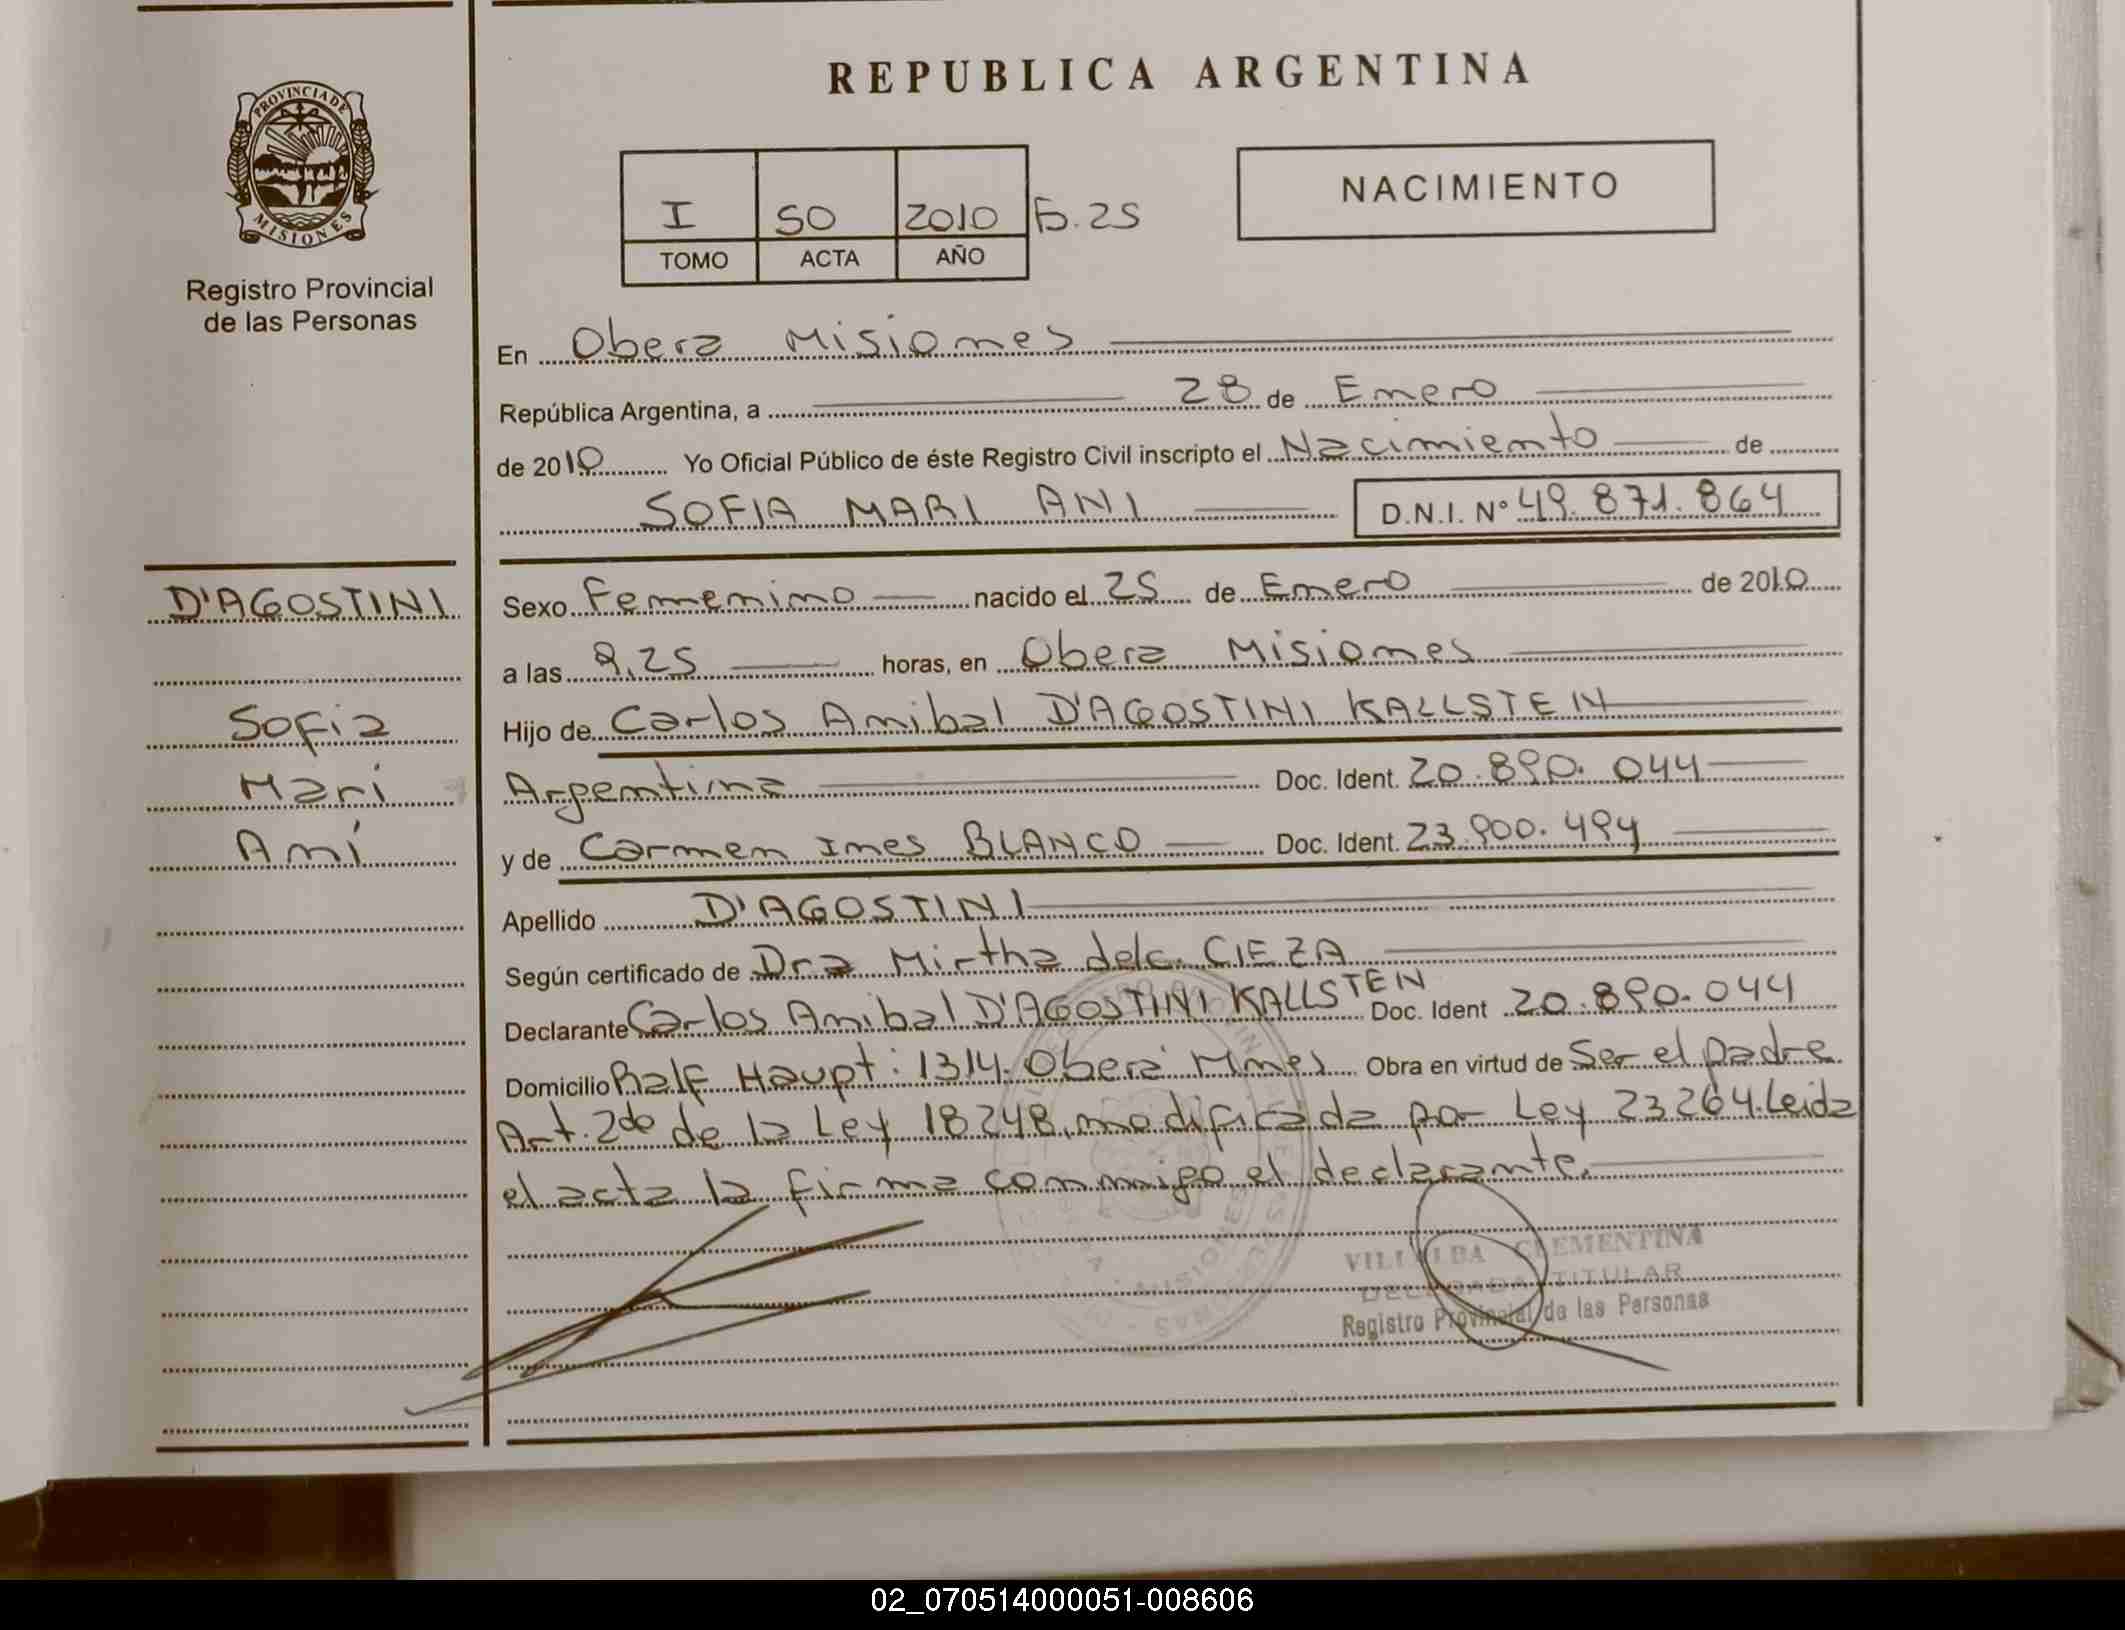 REPUBLICA ARGENTINA
PROVINCIA DE
MISIONES
Registro Provincial
de las Personas
I 50 2010 Fo. 25
TOMO ACTA AÑO
NACIMIENTO
En Obera Misiones
República Argentina, a 28 de Enero
de 2010 Yo Oficial Público de éste Registro Civil inscripto el Nacimiento de
SOFIA MARI ANI D.N.I. Nº 49.871.864
D'AGOSTINI
Sofia
Mari
Ani
Sexo Femenino nacido el 25 de Enero de 2010
a las 9,25 horas, en Obera Misiones
Hijo de Carlos Anibal D'AGOSTINI KALLSTEN
Argentina Doc. Ident. 20.890.044
y de Carmen Ines BLANCO Doc. Ident. 23.900.494
Apellido D'AGOSTINI
Según certificado de Dra Mirtha delc. CIEZA
Declarante Carlos Anibal D'AGOSTINI KALLSTEN Doc. Ident 20.890.044
Domicilio Ralf Haupt: 1314. Oberá Mnes Obra en virtud de Ser el padre
Art. 2do de la Ley 18248, modificada por Ley 23264. Leida
el acta la firma conmigo el declarante.
VILLALBA CLEMENTINA
DELEGADA TITULAR
Registro Provincial de las Personas
02_070514000051-008606